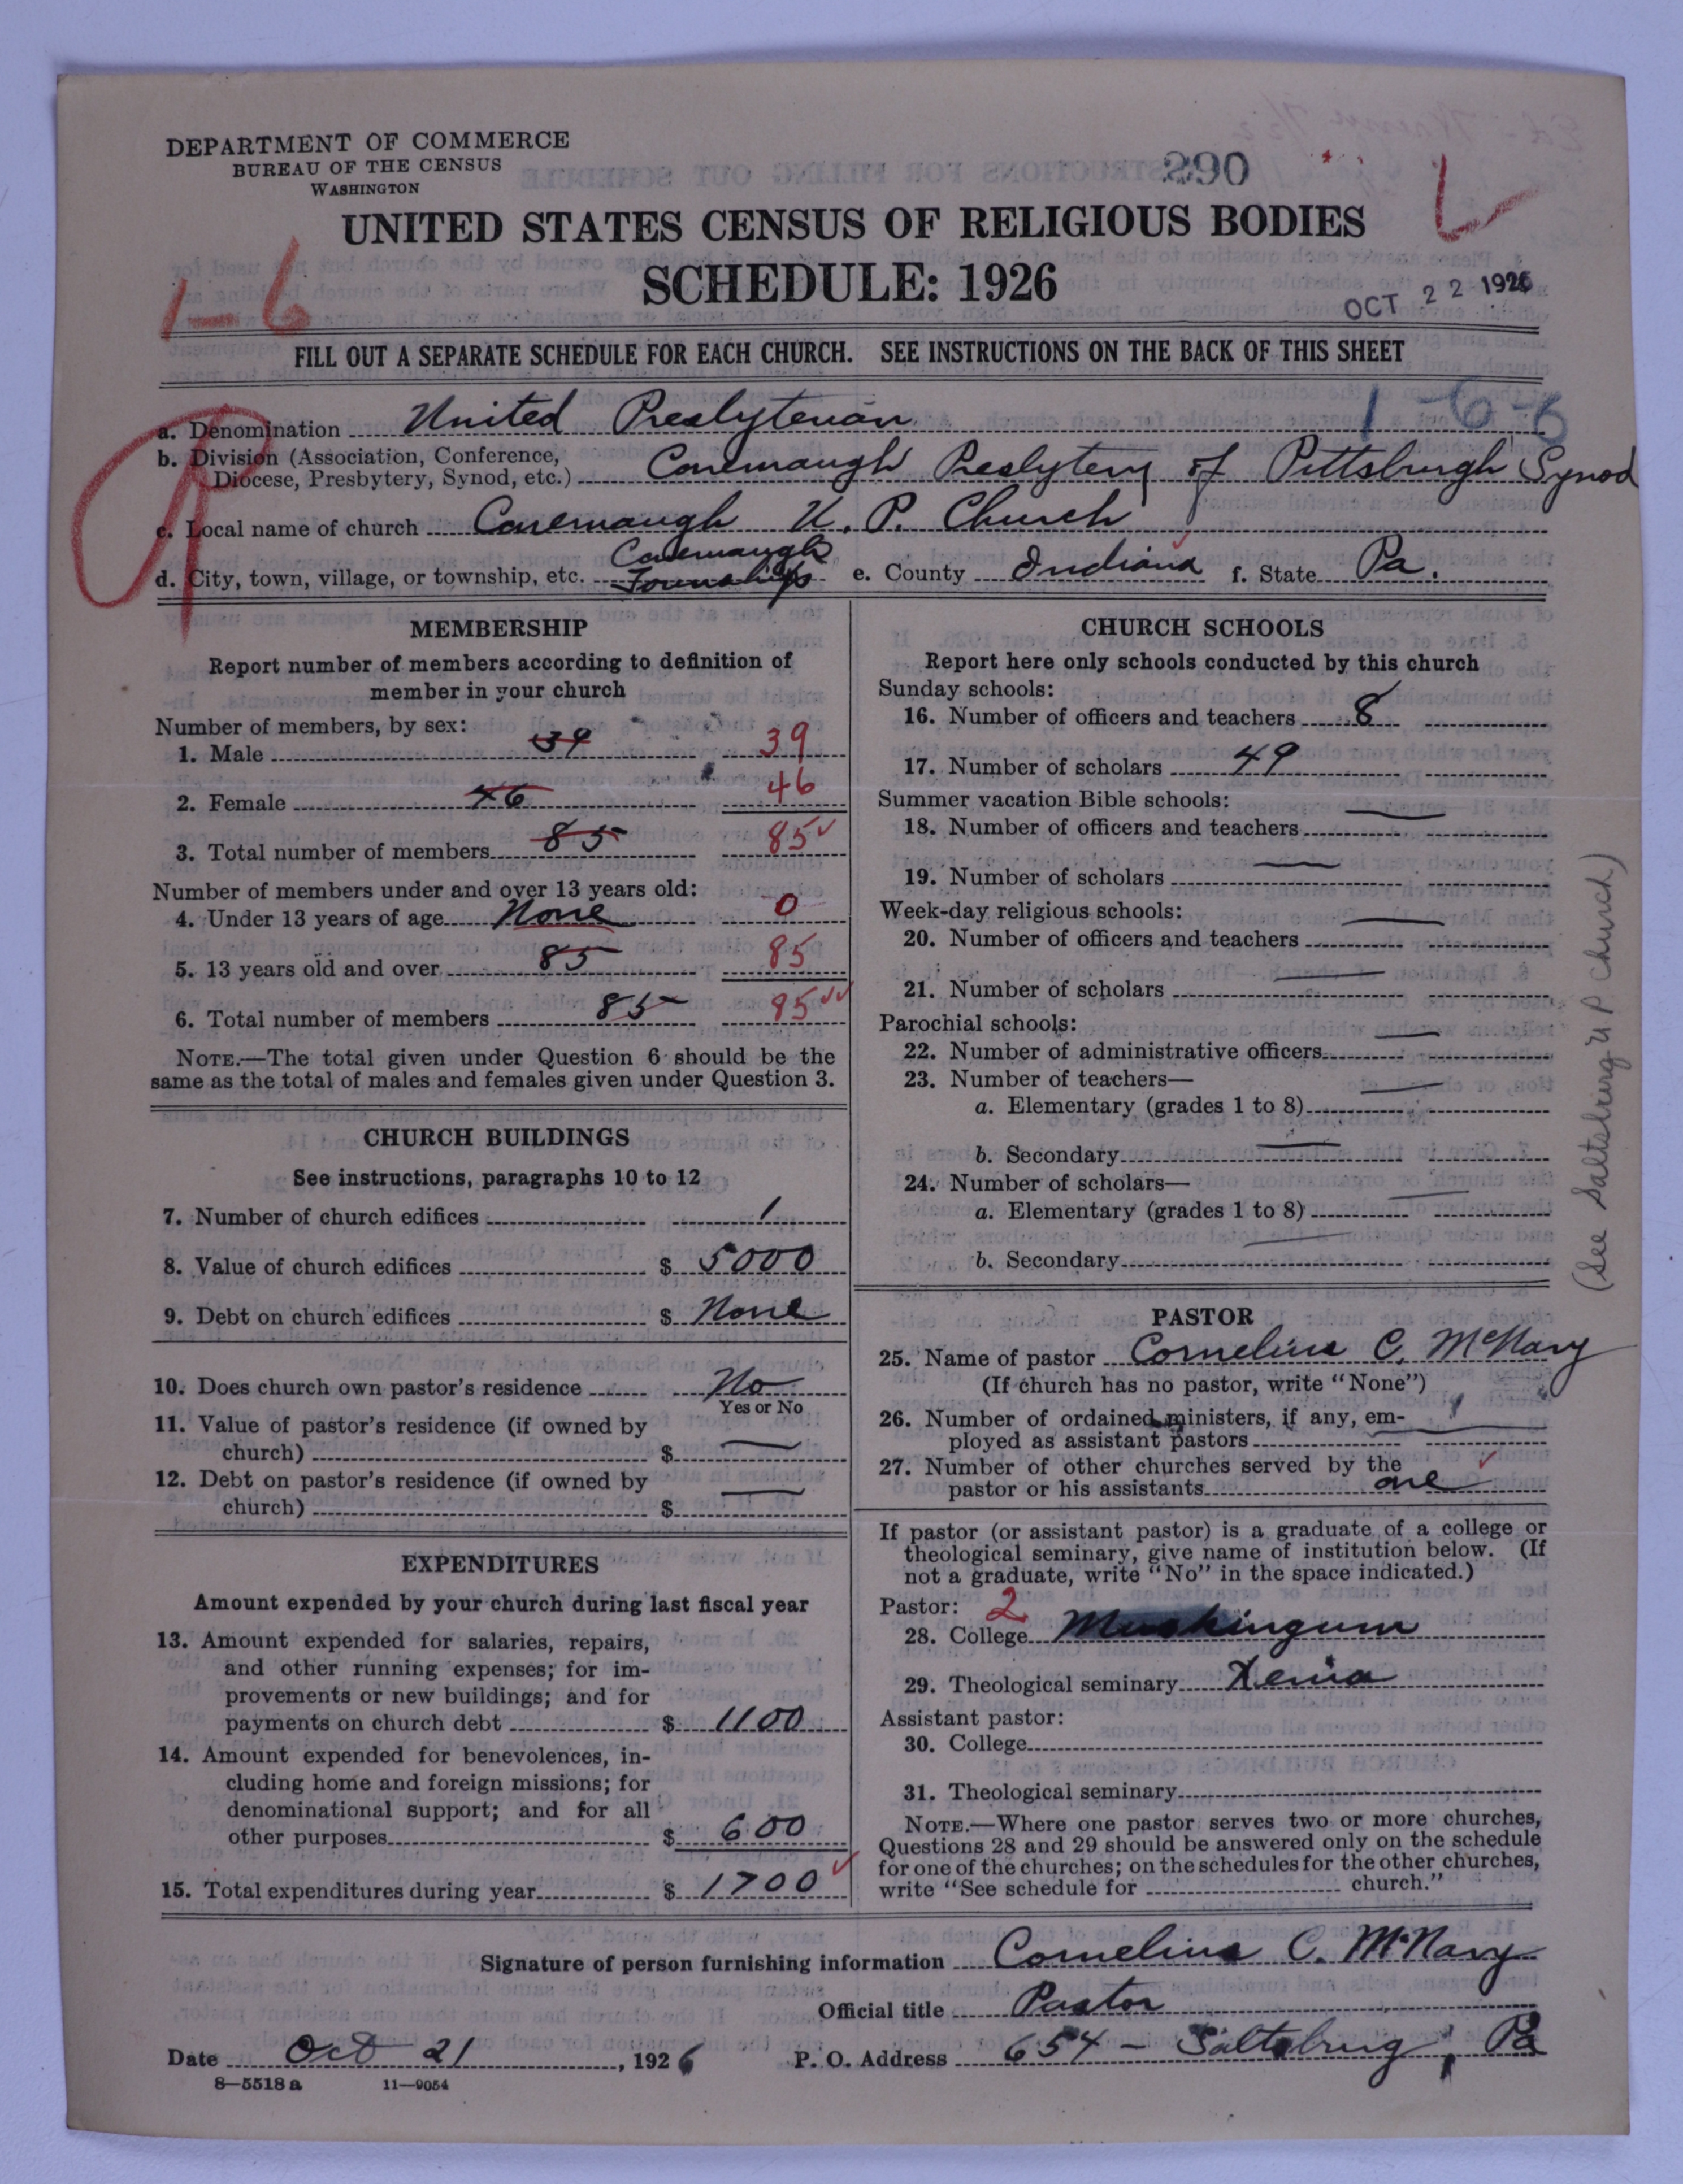 DEPARTMENT OF COMMERCE
BUREAU OF THE CENSUS
WASHINGTON
290
UNITED STATES CENSUS OF RELIGIOUS BODIES
SCHEDULE: 1926
OCT 22 1926
1-6
FILL OUT A SEPARATE SCHEDULE FOR EACH CHURCH. SEE INSTRUCTIONS ON THE BACK OF THIS SHEET
a. Denomination United Presbyterian 1-6-6
b. Division (Association, Conference,
Diocese, Presbytery, Synod, etc.) Conemaugh Presbytery of Pittsburgh Synod
c. Local name of church Conemaugh U. P. Church
d. City, town, village, or township, etc. Conemaugh Township e. County Indiana f. State Pa.
MEMBERSHIP
Report number of members according to definition of
member in your church
Number of members, by sex:
1. Male 39 39
2. Female 46 46
3. Total number of members 85 85
Number of members under and over 13 years old:
4. Under 13 years of age None 0
5. 13 years old and over 85 85
6. Total number of members 85 85
NOTE.—The total given under Question 6 should be the
same as the total of males and females given under Question 3.
CHURCH BUILDINGS
See instructions, paragraphs 10 to 12
7. Number of church edifices 1
8. Value of church edifices $ 5000
9. Debt on church edifices $ None
10. Does church own pastor's residence No
Yes or No
11. Value of pastor's residence (if owned by
church) $ —
12. Debt on pastor's residence (if owned by
church) $ —
EXPENDITURES
Amount expended by your church during last fiscal year
13. Amount expended for salaries, repairs,
and other running expenses; for im-
provements or new buildings; and for
payments on church debt $ 1100
14. Amount expended for benevolences, in-
cluding home and foreign missions; for
denominational support; and for all
other purposes $ 600
15. Total expenditures during year $ 1700
CHURCH SCHOOLS
Report here only schools conducted by this church
Sunday schools:
16. Number of officers and teachers 8
17. Number of scholars 49
Summer vacation Bible schools:
18. Number of officers and teachers —
19. Number of scholars —
Week-day religious schools:
20. Number of officers and teachers —
21. Number of scholars —
Parochial schools:
22. Number of administrative officers —
23. Number of teachers—
a. Elementary (grades 1 to 8) —
b. Secondary —
24. Number of scholars—
a. Elementary (grades 1 to 8) —
b. Secondary —
(See Saltsburg U P. Church)
PASTOR
25. Name of pastor Cornelius C. McNary
(If church has no pastor, write "None")
26. Number of ordained ministers, if any, em-
ployed as assistant pastors —
27. Number of other churches served by the
pastor or his assistants one
If pastor (or assistant pastor) is a graduate of a college or
theological seminary, give name of institution below. (If
not a graduate, write "No" in the space indicated.)
Pastor: 2
28. College Muskingum
29. Theological seminary Xenia
Assistant pastor:
30. College
31. Theological seminary
NOTE.—Where one pastor serves two or more churches,
Questions 28 and 29 should be answered only on the schedule
for one of the churches; on the schedules for the other churches,
write "See schedule for church."
Signature of person furnishing information Cornelius C. McNary
Official title Pastor
Date Oct 21, 1926 P. O. Address 654 - Saltsburg, Pa
8—5518 a 11—9054